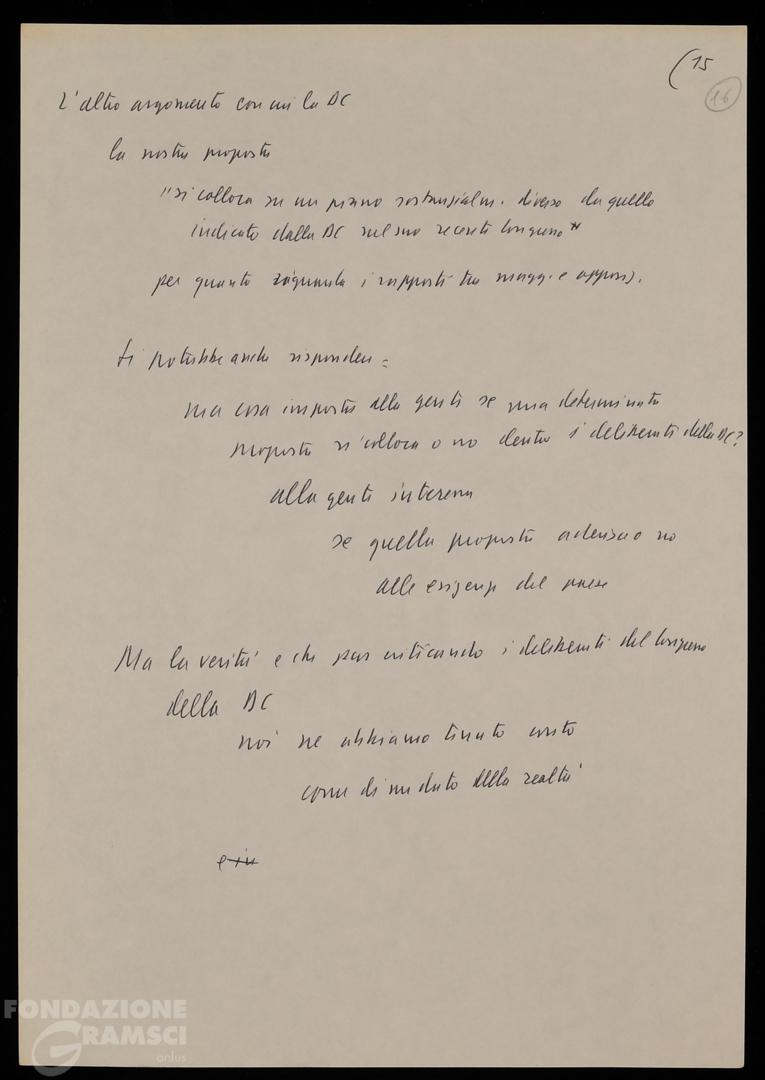 (15
16
L'altro argomento con cui la DC
la nostra proposta
"si colloca su un piano sostanzialm. diverso da quello
indicato dalla DC nel suo recente Congresso"
per quanto riguarda i rapporti tra magg. e oppos).
Si potrebbe anche rispondere =
ma cosa importa alla gente se una determinata
proposta si colloca o no dentro i deliberati della DC?
alla gente interessa
se quella proposta aderisca o no
alle esigenze del paese
Ma la verità è che pur criticando i deliberati del Congresso
della DC
noi ne abbiamo tenuto conto
come di un dato della realtà
FONDAZIONE
GRAMSCI
onlus